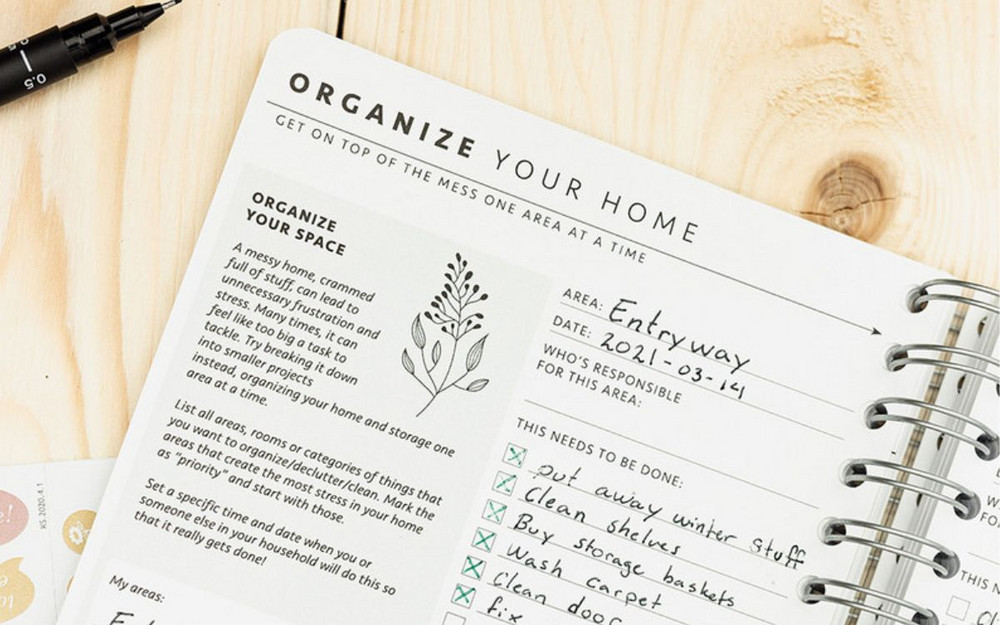 0.5
ORGANIZE YOUR HOME
GET ON TOP OF THE MESS ONE AREA AT A TIME
ORGANIZE
YOUR SPACE
A messy home, crammed
full of stuff, can lead to
unnecessary frustration and
stress. Many times, it can
feel like too big a task to
tackle. Try breaking it down
into smaller projects
instead, organizing your home and storage one
area at a time.
List all areas, rooms or categories of things that
you want to organize/declutter/clean. Mark the
areas that create the most stress in your home
as "priority" and start with those.
Set a specific time and date when you or
someone else in your household will do this so
that it really gets done!
My areas:
AREA: Entryway
DATE: 2021-03-14
WHO'S RESPONSIBLE
FOR THIS AREA:
THIS NEEDS TO BE DONE:
put away winter stuff
Clean shelves
Buy storage baskets
Wash carpet
Clean door
fix
KS.2020.4.1
THIS N